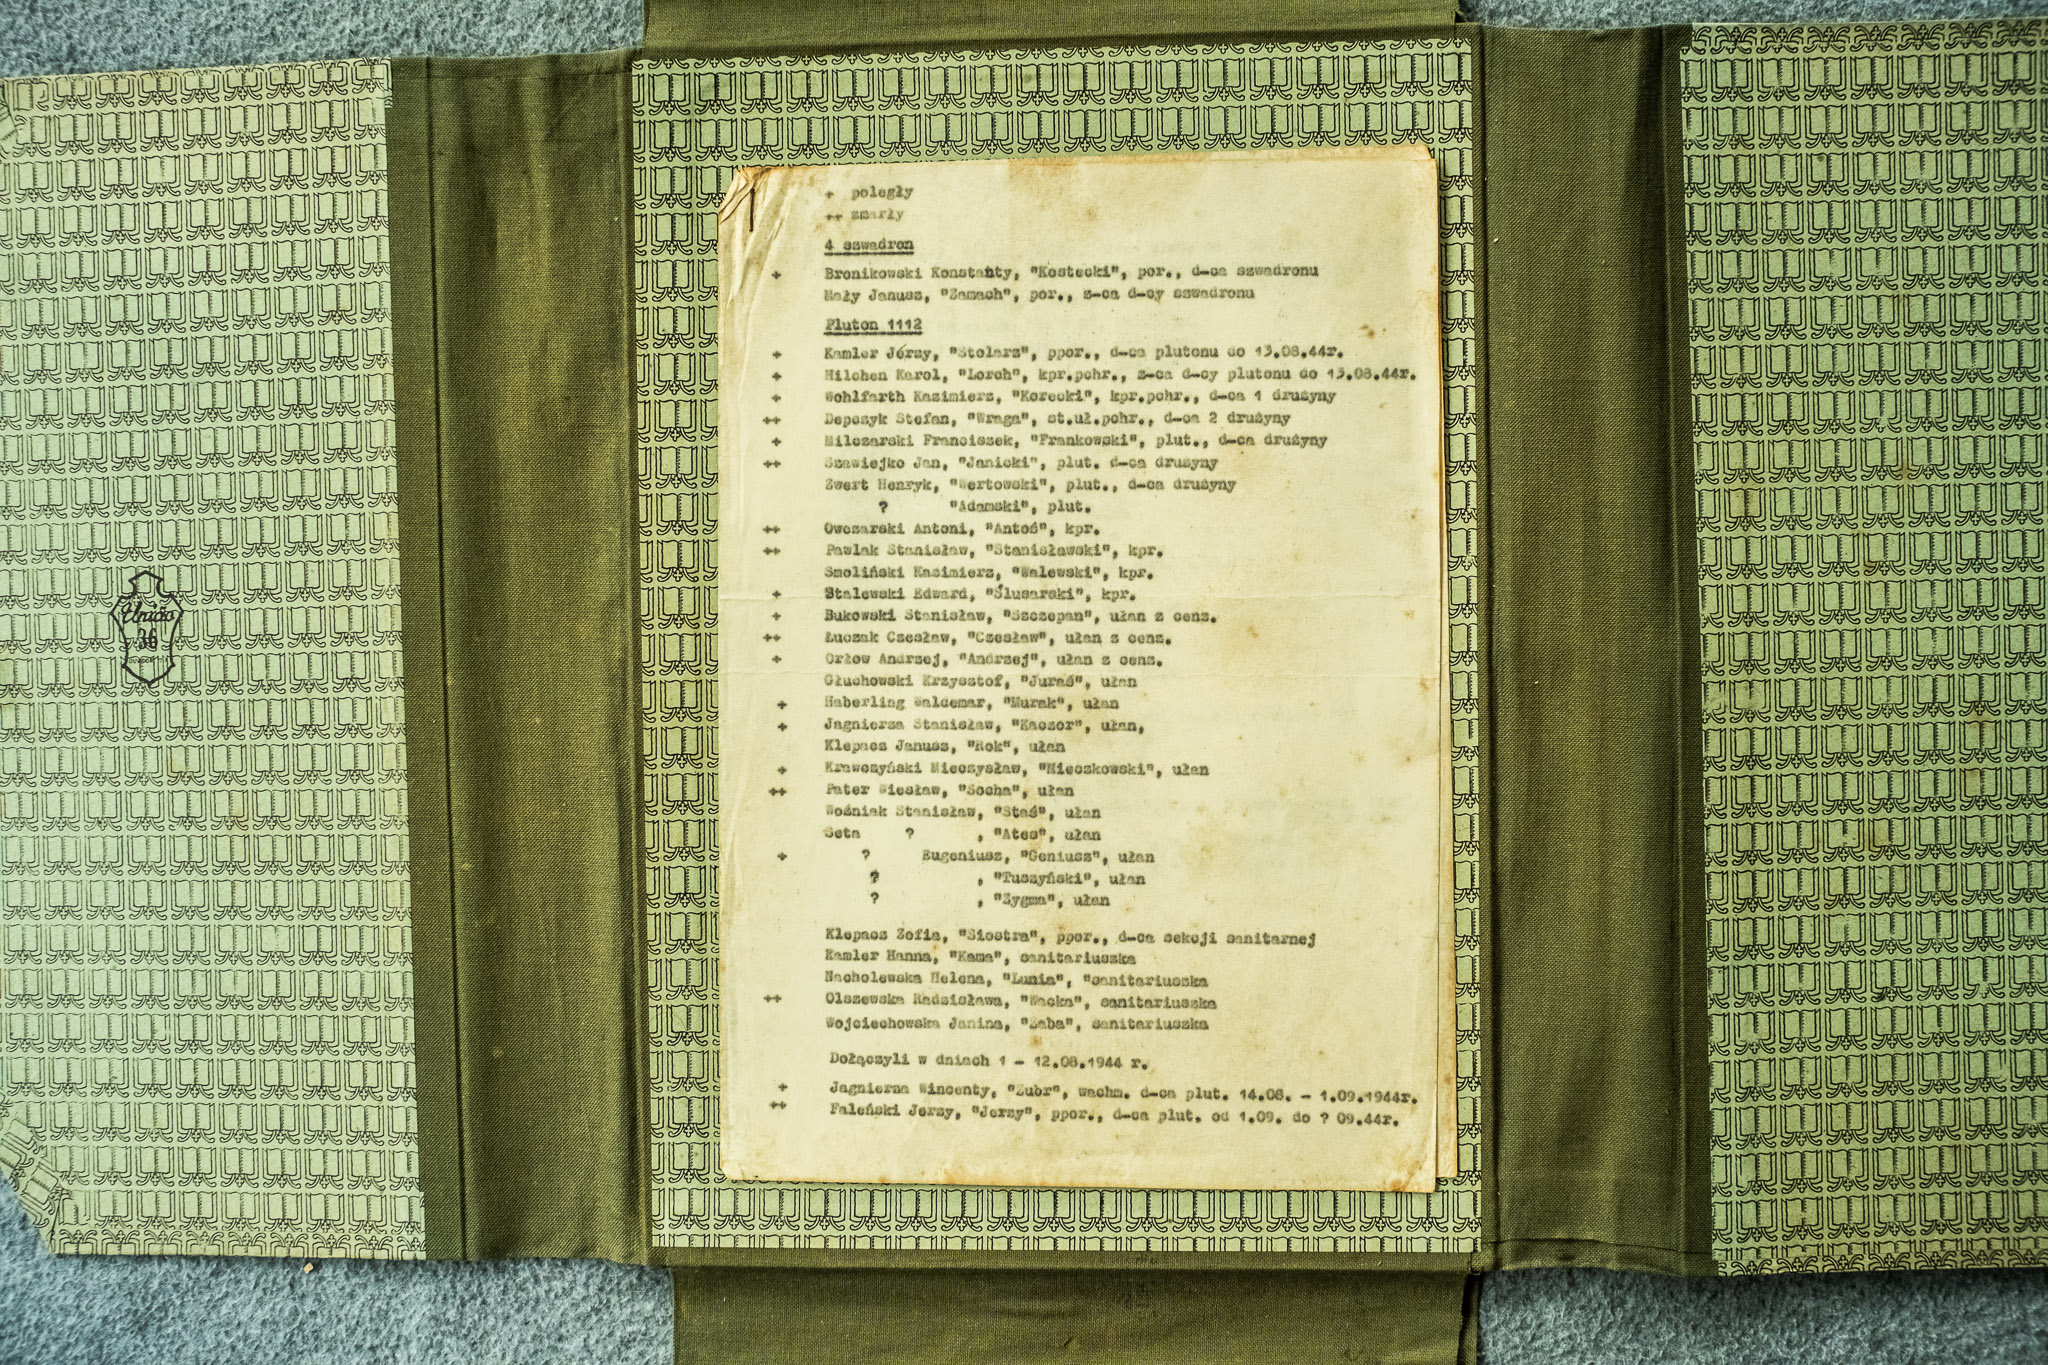 Unión
36
+ poległy
++ zmarły
4 szwadron
+ Bronikowski Konstanty, "Kostecki", por., d-ca szwadronu
Mały Janusz, "Zamach", por., z-ca d-cy szwadronu
Pluton 1112
+ Kamler Jerzy, "Stolarz", ppor., d-ca plutonu do 13.08.44r.
+ Hilchen Karol, "Lorch", kpr.pchr., z-ca d-cy plutonu do 13.08.44r.
+ Wohlfarth Kazimierz, "Korecki", kpr.pchr., d-ca 1 drużyny
++ Depczyk Stefan, "Wraga", st.uł.pchr., d-ca 2 drużyny
+ Milczarski Franciszek, "Frankowski", plut., d-ca drużyny
++ Szawiejko Jan, "Janicki", plut. d-ca drużyny
Zwert Henryk, "Wertowski", plut., d-ca drużyny
? "Adamski", plut.
++ Owczarski Antoni, "Antoś", kpr.
++ Pawlak Stanisław, "Stanisławski", kpr.
Smoliński Kazimierz, "Walewski", kpr.
+ Stalewski Edward, "Ślusarski", kpr.
+ Bukowski Stanisław, "Szczepan", ułan z cenz.
++ Łuczak Czesław, "Czesław", ułan z cenz.
+ Orłow Andrzej, "Andrzej", ułan z cenz.
Głuchowski Krzysztof, "Juraś", ułan
+ Haberling Waldemar, "Murak", ułan
+ Jagnierza Stanisław, "Kaczor", ułan,
Klepacz Janusz, "Rok", ułan
+ Krawczyński Mieczysław, "Mieczkowski", ułan
++ Pater Wiesław, "Socha", ułan
Woźniak Stanisław, "Staś", ułan
Seta ? , "Ates", ułan
+ ? Eugeniusz, "Geniusz", ułan
? , "Tuszyński", ułan
? , "Zygma", ułan
Klepacz Zofia, "Siostra", ppor., d-ca sekcji sanitarnej
Kamler Hanna, "Kama", sanitariuszka
Nacholewska Helena, "Lunia", "sanitariuszka
++ Olszewska Radzisława, "Wacka", sanitariuszka
Wojciechowska Janina, "Żaba", sanitariuszka
Dołączyli w dniach 1 - 12.08.1944 r.
+ Jagnierza Wincenty, "Żubr", wachm. d-ca plut. 14.08. - 1.09.1944r.
++ Faleński Jerzy, "Jerzy", ppor., d-ca plut. od 1.09. do ? 09.44r.